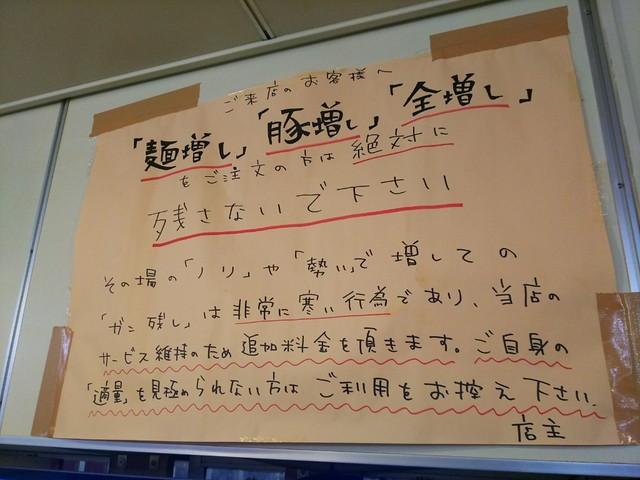 ご来店のお客様へ
「麺増し」「豚増し」「全増し」
をご注文の方は絶対に
残さないで下さい
その場の「ノリ」や「勢い」で増しての
「ガン残し」は非常に寒い行為であり、当店の
サービス維持のため追加料金を頂きます。ご自身の
「適量」を見極められない方はご利用をお控え下さい。
店主